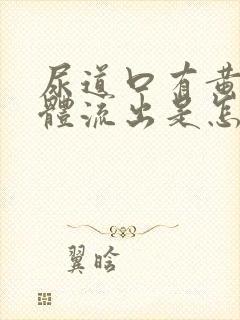 尿道口有黄
體流出是怎
翼晗